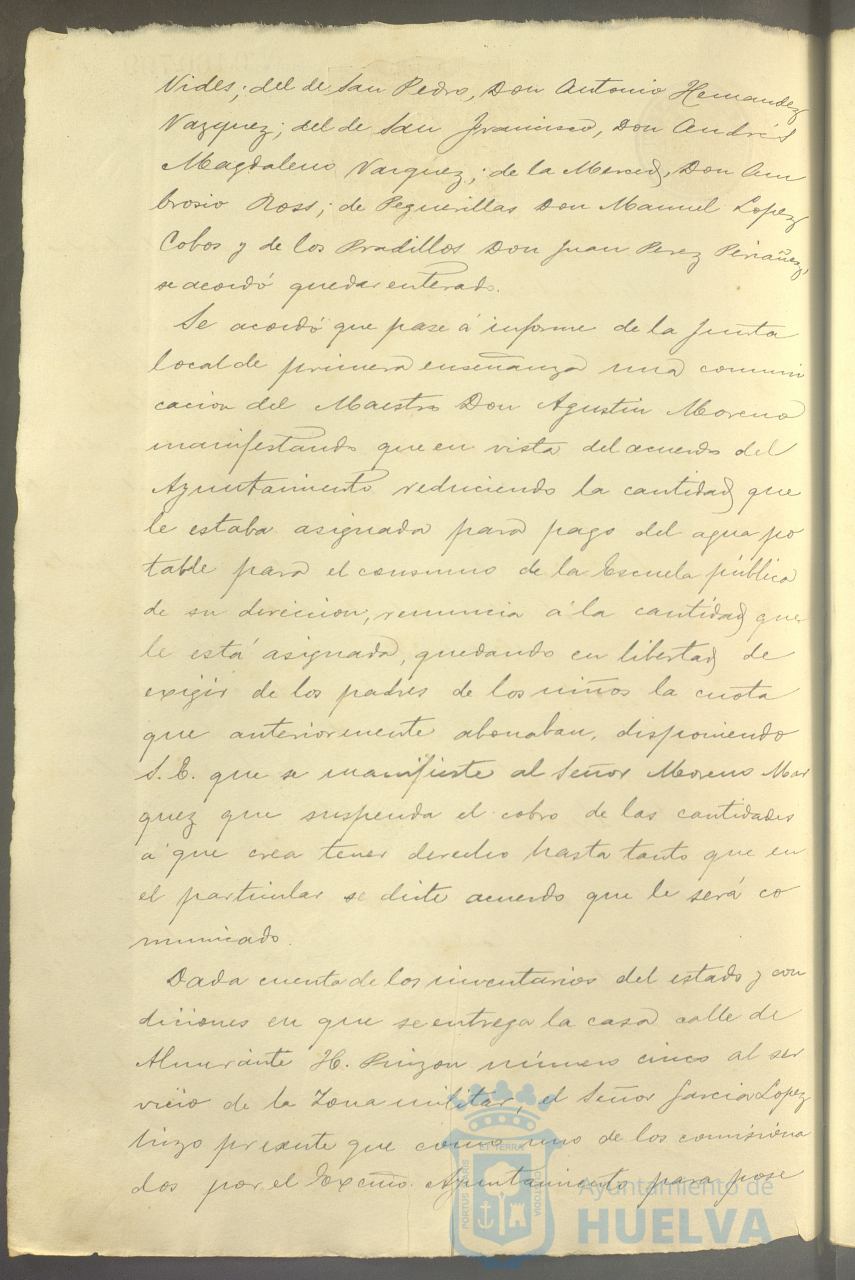 Vides; del de San Pedro, Don Antonio Hernandez
Vazquez; del de San Francisco, Don Andrés
Magdaleno Vazquez; de la Merced, Don Am
brosio Ross; de Peguerillas Don Manuel Lopez
Cobos y de los Pradillos Don Juan Perez Periañez,
se acordó quedar enterado.
Se acordó que pase á informe de la Junta
local de primera enseñanza una comuni
cacion del Maestro Don Agustin Moreno
manifestando que en vista del acuerdo del
Ayuntamiento reduciendo la cantidad que
le estaba asignada para pago del agua po
table para el consumo de la Escuela pública
de su direccion, renuncia á la cantidad que
le está asignada, quedando en libertad de
exigir de los padres de los niños la cuota
que anteriormente abonaban, disponiendo
S. E. que se manifieste al Señor Moreno Mar
quez que suspenda el cobro de las cantidades
á que crea tener derecho hasta tanto que en
el particular se dicte acuerdo que le será co
municado.
Dada cuenta de los inventarios del estado y con
diciones en que se entrega la casa calle de
Almirante H. Pinzon número cinco al ser
vicio de la Zona militar, el Señor Garcia Lopez
hizo presente que como uno de los comisiona
dos por el Excmo. Ayuntamiento para pose
PORTUS MARIS
ET TERRÆ
CUSTODIA
Ayuntamiento de
HUELVA